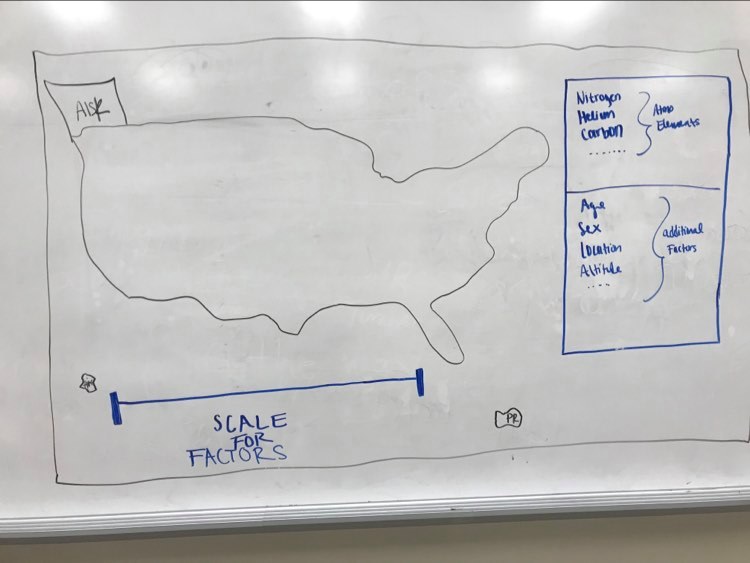 AlSK
Nitrogen
Helium
Carbon
.......
Atmo
Elements
Age
Sex
Location
Altitude
....
additional
Factors
PR
SCALE
FOR
FACTORS